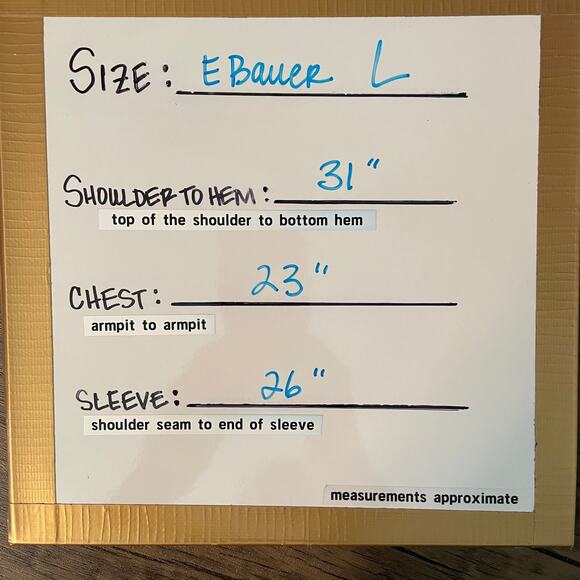 SIZE: E BAUER L
SHOULDER TO HEM: 31"
top of the shoulder to bottom hem
CHEST: 23"
armpit to armpit
SLEEVE: 26"
shoulder seam to end of sleeve
measurements approximate